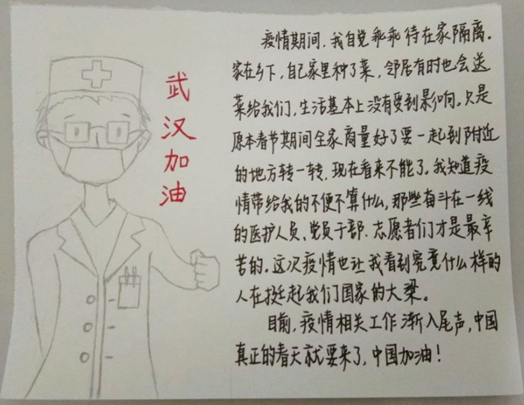 武
汉
加
油
疫情期间，我自觉乖乖待在家隔离。
家在乡下，自己家里种了菜，邻居有时也会送
菜给我们，生活基本上没有受到影响。只是
原本春节期间全家商量好了要一起到附近
的地方转一转，现在看来不能了。我知道疫
情带给我的不便不算什么，那些奋斗在一线
的医护人员，党员干部、志愿者们才是最辛
苦的。这次疫情也让我看到究竟什么样的
人在挺起我们国家的大梁。
目前，疫情相关工作渐入尾声，中国
真正的春天就要来了，中国加油！